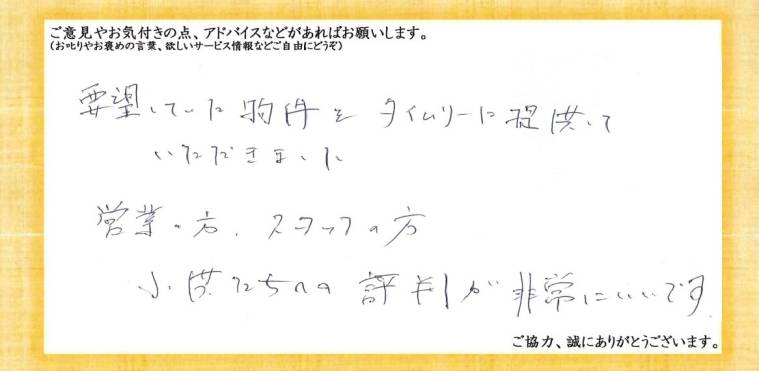 ご意見やお気付きの点、アドバイスなどがあればお願いします。
(お叱りやお褒めの言葉、欲しいサービス情報などご自由にどうぞ)
要望していた物件を タイムリーに提供して
いただきました
営業の方、スタッフの方
小供たちへの 評判が 非常にいいです
ご協力、誠にありがとうございます。